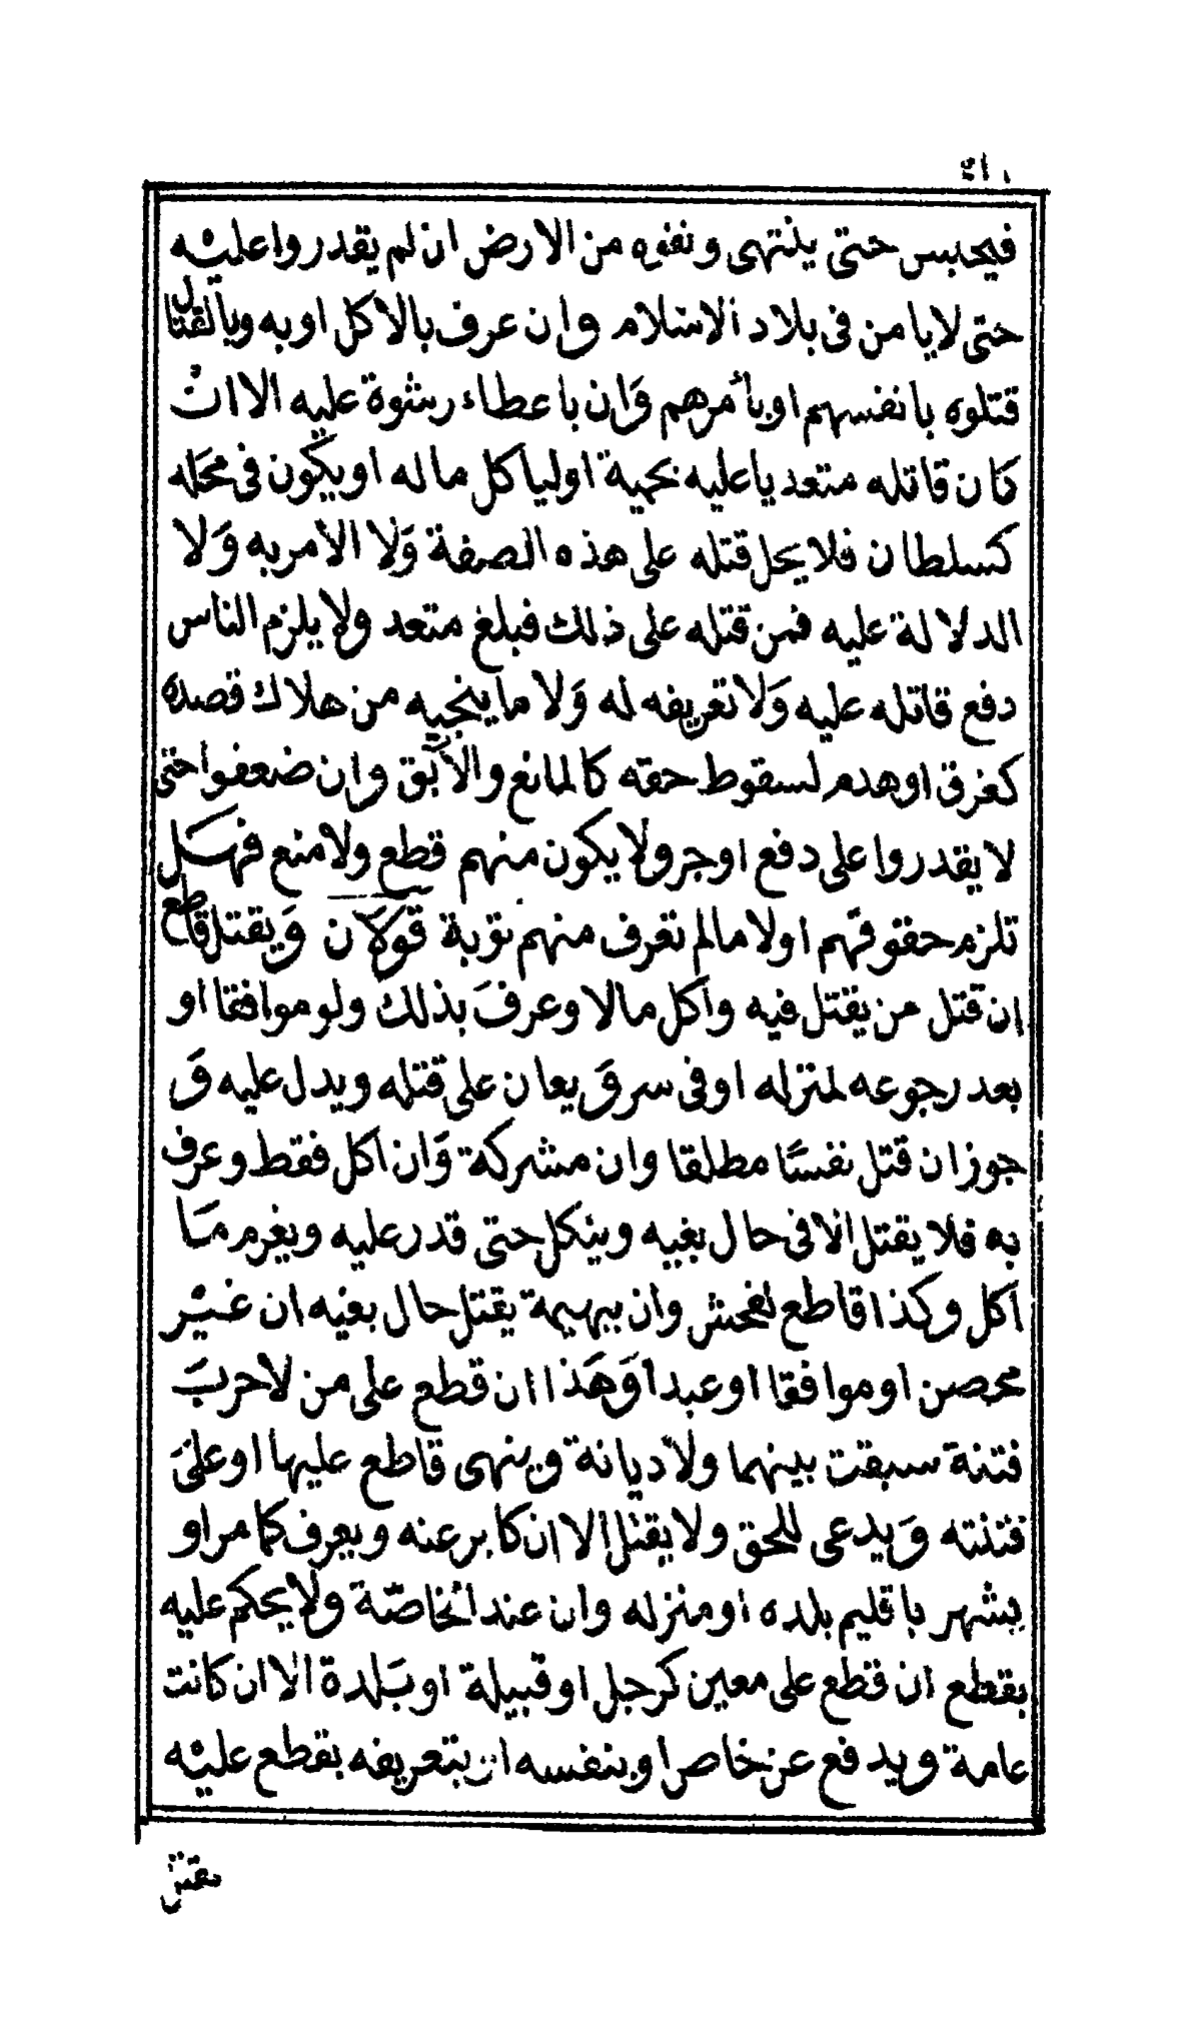 فيحبس حتى ينتهى ونفوه من الارض ان لم يقدروا عليه
حتى لا يامن فى بلاد الاسلام وان عرف بالاكل او به وبالقتال
قتلوه بانفسهم او بأمرهم وَان باعطاء رشوة عليه الا ان
كان قاتله متعديا عليه بحمية او لياكل ماله او يكون فى محله
كسلطان فلا يحل قتله على هذه الصفة وَلا الأمر به وَلا
الدلالة عليه فمن قتله على ذلك فبلغ متعد ولا يلزم الناس
دفع قاتله عليه وَلا تعريفه له وَلا ما ينجيه من هلاك قصده
كغرق او هدم لسقوط حقه كالمانع والآبق وان ضعفوا حتى
لا يقدروا على دفع او جر ولا يكون منهم قطع ولا منع فهل
تلزم حقوقهم او لا ما لم تعرف منهم توبة قولان وَيقتل قاطع
ان قتل من يقتل فيه وأكل مالا وعرفَ بذلك ولو موافقا او
بعد رجوعه لمنزله او فى سرقَ يعان على قتله ويدل عليه وَ
جوز ان قتل نفسًا مطلقا وان مشركة وَان اكل فقط وعرف
به فلا يقتل الا فى حال بغيه وينكل حتى قدر عليه ويغرم مَا
أكل وكذا قاطع لفحش وان ببهيمة يقتل حال بغيه ان غير
محصن او موافقا او عبدا وَهَذا ان قطع على من لا حربَ
فتنة سبقت بينهما ولا ديانة وينهى قاطع عليها او علىَ
فتنته وَيدعى للحق ولا يقتل الا ان كابر عنه ويعرف كما مر او
بشهر باقليم بلده او منزله وان عند الخاصّة ولا يحكم عليه
بقطع ان قطع على معين كرجل او قبيلة او بَلدة الا ان كانت
عامة ويدفع عن خاص او بنفسه ان بتعريفه بقطع عليه